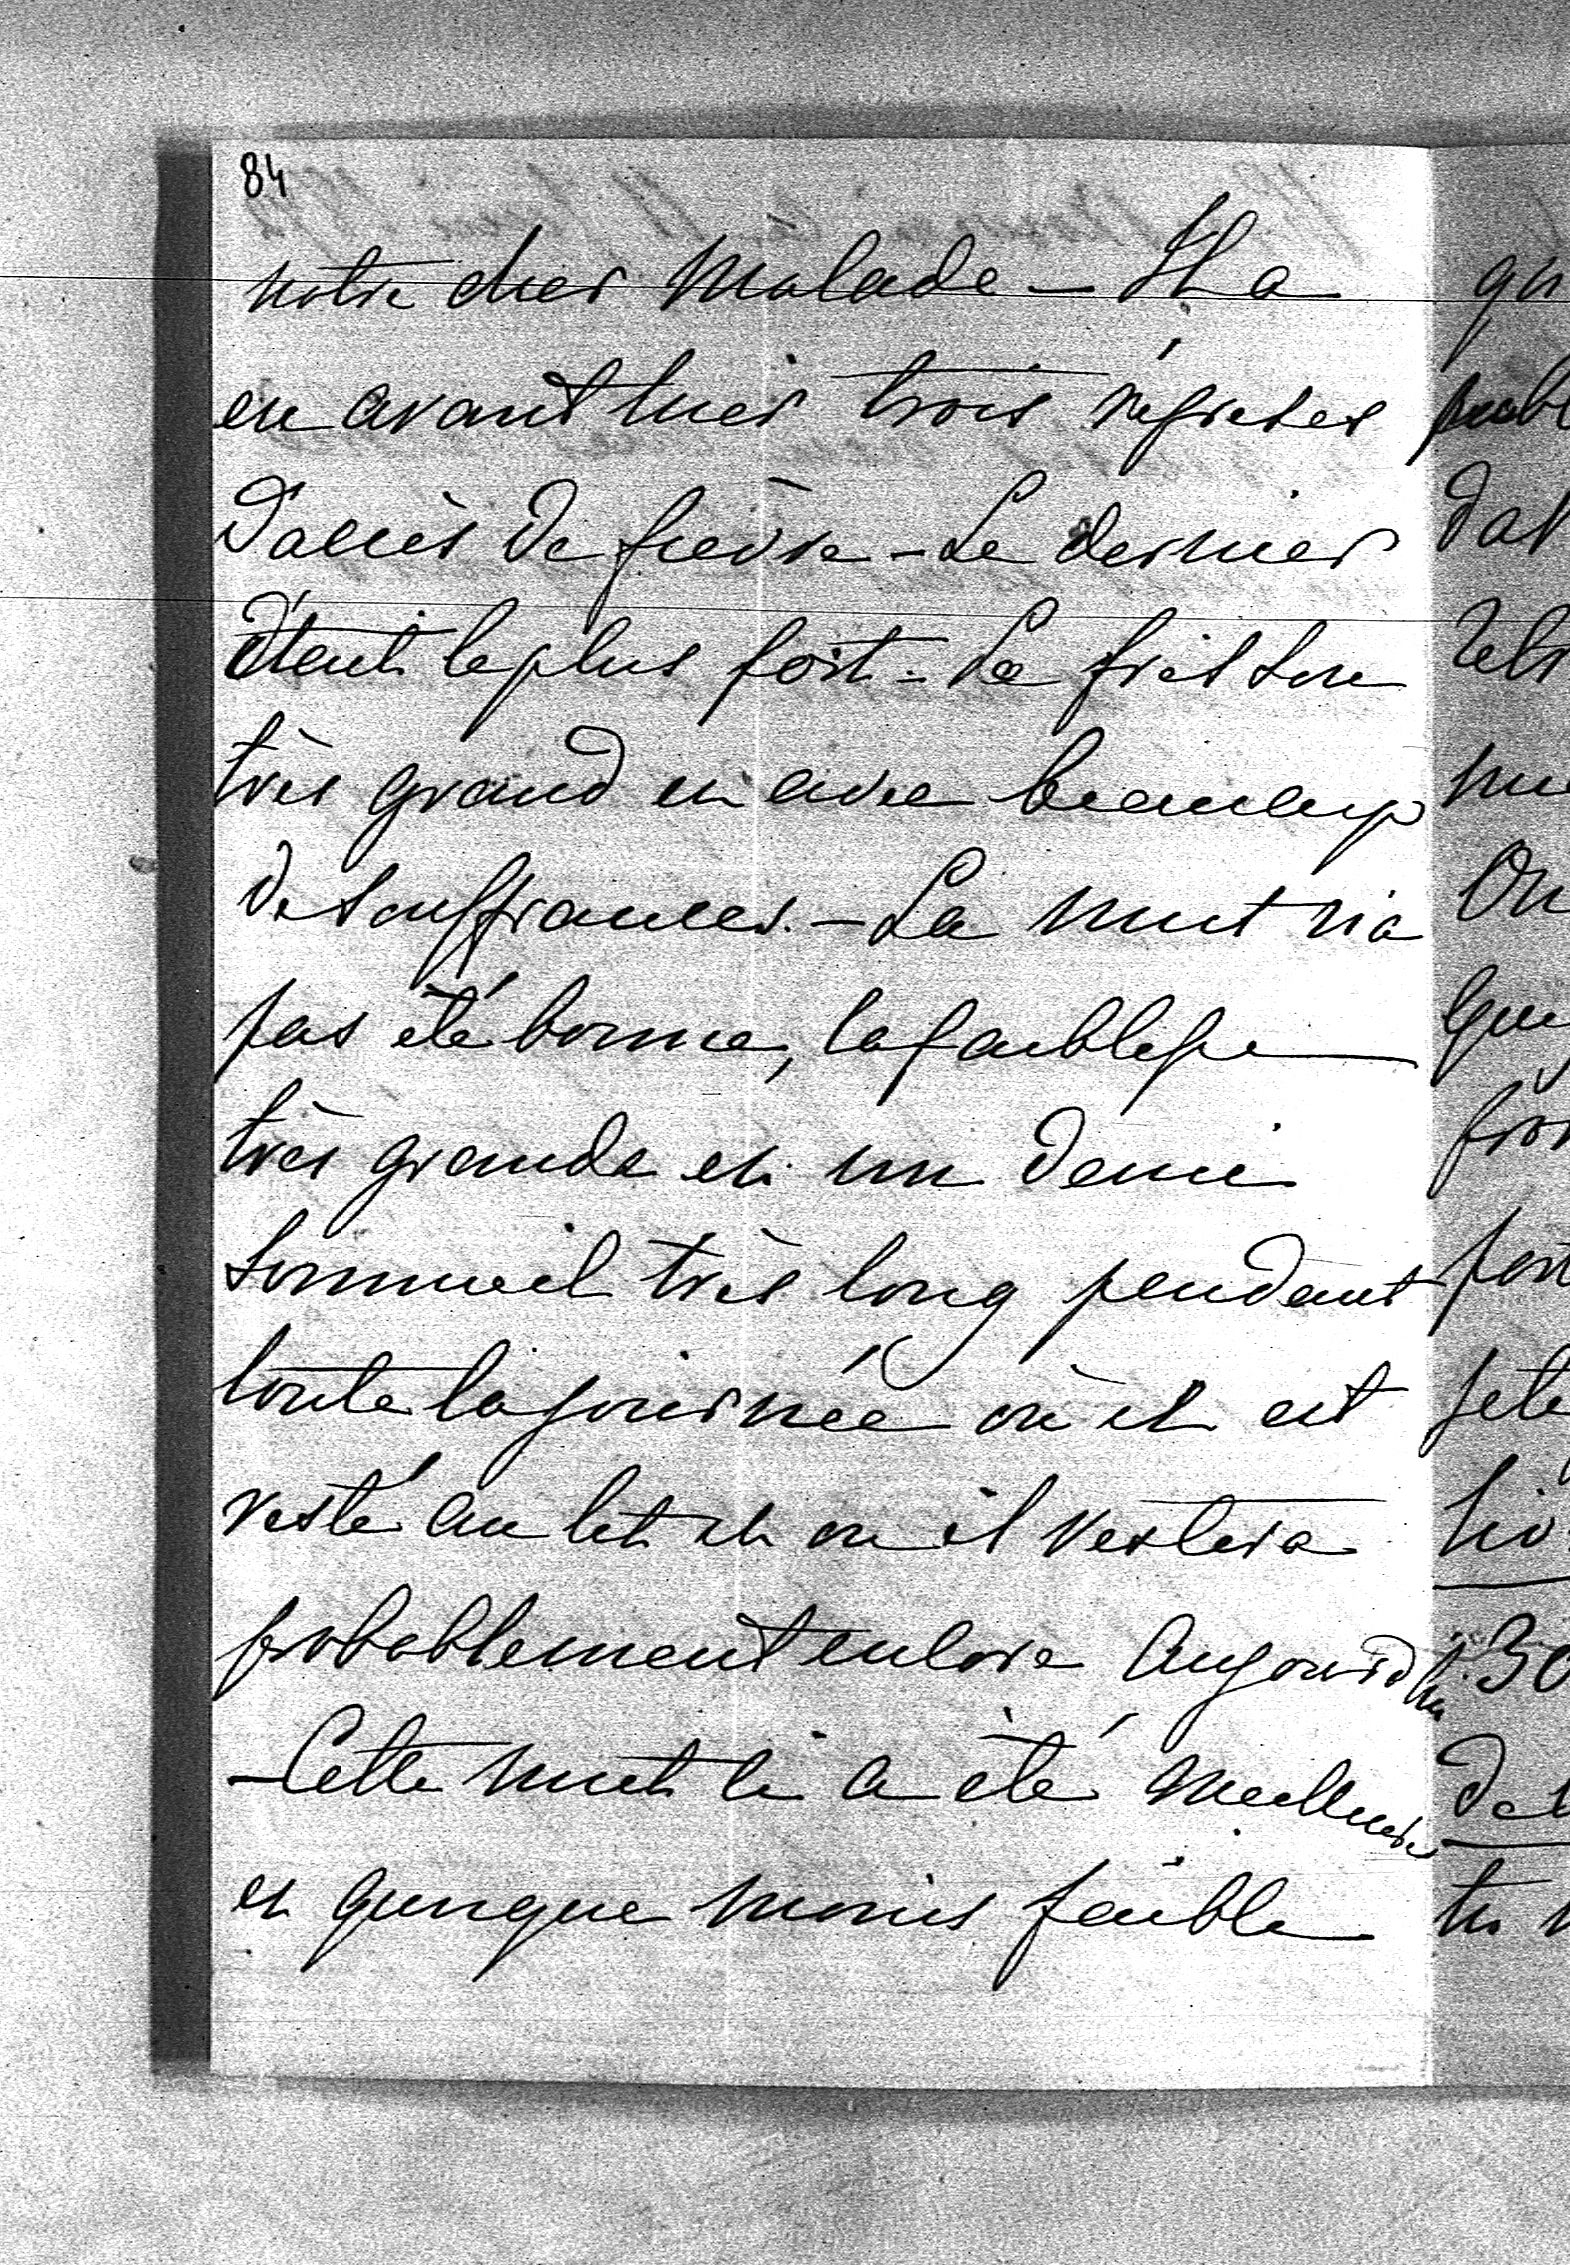 84
notre cher malade – Il a
eu avant hier trois réprises
d'accès de fièvre – Le dernier
était le plus fort – Le frisson
très grand et avec beaucoup
de souffrances. – La nuit n'a
pas été bonne, la faiblesse
très grande et un demi
sommeil très long pendant
toute la journée où il est
resté au lit et ou il restera
probablement encore aujourd'hui
– Cette nuit ci a été meilleure
et quoique moins faible